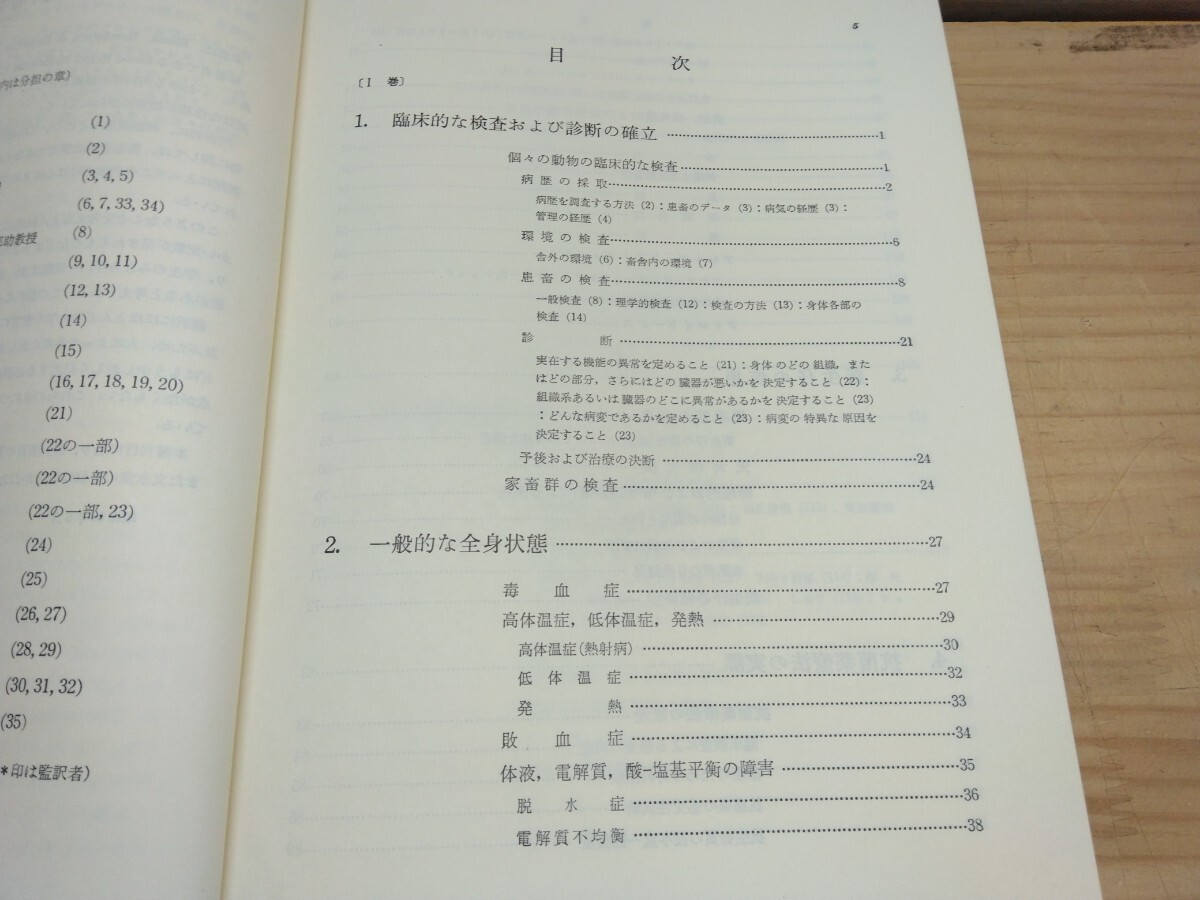 内は分担の章)
(1)
(2)
(3, 4, 5)
(6, 7, 33, 34)
助教授 (8)
(9, 10, 11)
(12, 13)
(14)
(15)
(16, 17, 18, 19, 20)
(21)
(22の一部)
(22の一部)
(22の一部, 23)
(24)
(25)
(26, 27)
(28, 29)
(30, 31, 32)
(35)
*印は監訳者)
5
目 次
〔I 巻〕
1. 臨床的な検査および診断の確立 ……1
個々の動物の臨床的な検査……1
病歴の採取……2
病歴を調査する方法 (2):患畜のデータ (3):病気の経歴 (3):
管理の経歴 (4)
環境の検査……6
舎外の環境 (6):畜舎内の環境 (7)
患畜の検査……8
一般検査 (8):理学的検査 (12):検査の方法 (13):身体各部の
検査 (14)
診 断……21
実在する機能の異常を定めること (21):身体のどの組織,また
はどの部分,さらにはどの臓器が悪いかを決定すること (22):
組織系あるいは臓器のどこに異常があるかを決定すること (23)
:どんな病変であるかを定めること (23):病変の特異な原因を
決定すること (23)
予後および治療の決断……24
家畜群の検査……24
2. 一般的な全身状態……27
毒血症……27
高体温症,低体温症,発熱……29
高体温症(熱射病)……30
低体温症……32
発熱……33
敗血症……34
体液,電解質,酸-塩基平衡の障害……35
脱水症……36
電解質不均衡……38